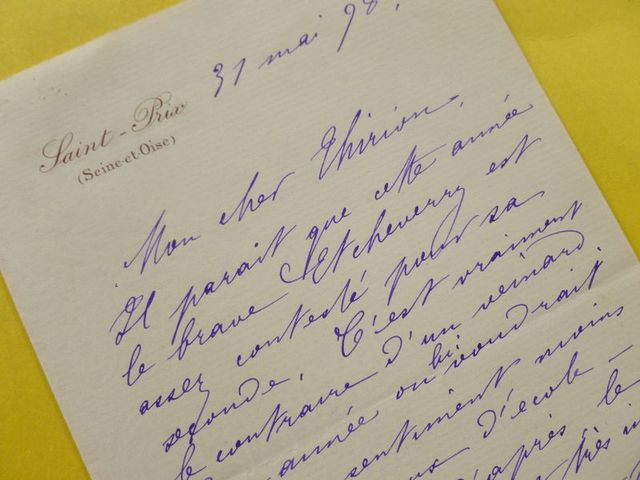 31 mai 98,
Saint-Prix
(Seine-et-Oise)
Mon cher Thirion,
Il parait que cette année
le brave Etcheverry est
assez contesté pour sa
seconde. C'est vraiment
le contraire d'un veinard.
année où lui voudrait
sentiment moins
d'école —
d'après le
très